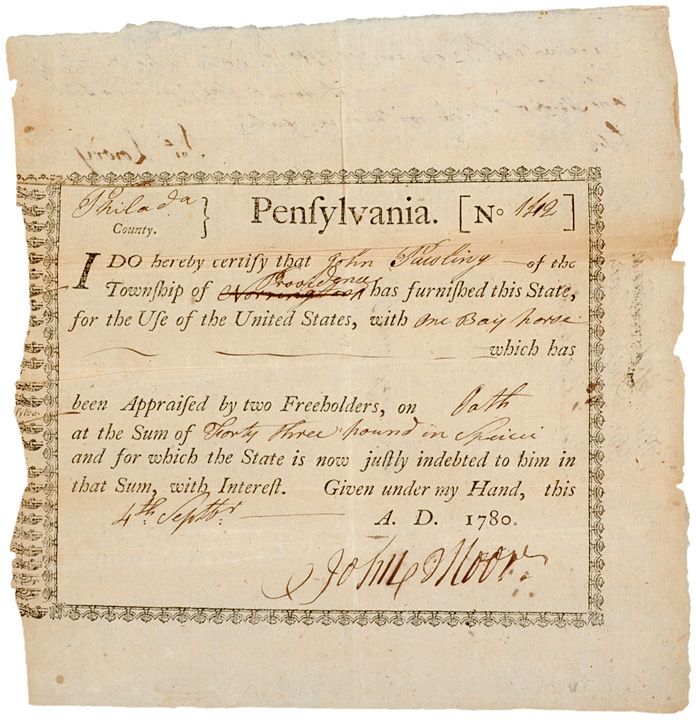 Philada }
County.
Penſylvania. [No 142]
I DO hereby certify that John Pawling of the
Providence
Townſhip of has furniſhed this State,
for the Uſe of the United States, with one Bay horse
which has
been Appraiſed by two Freeholders, on Oath
at the Sum of Forty three pound in Speicei
and for which the State is now juſtly indebted to him in
that Sum, with Intereſt. Given under my Hand, this
4th Septbr A. D. 1780.
John Moor